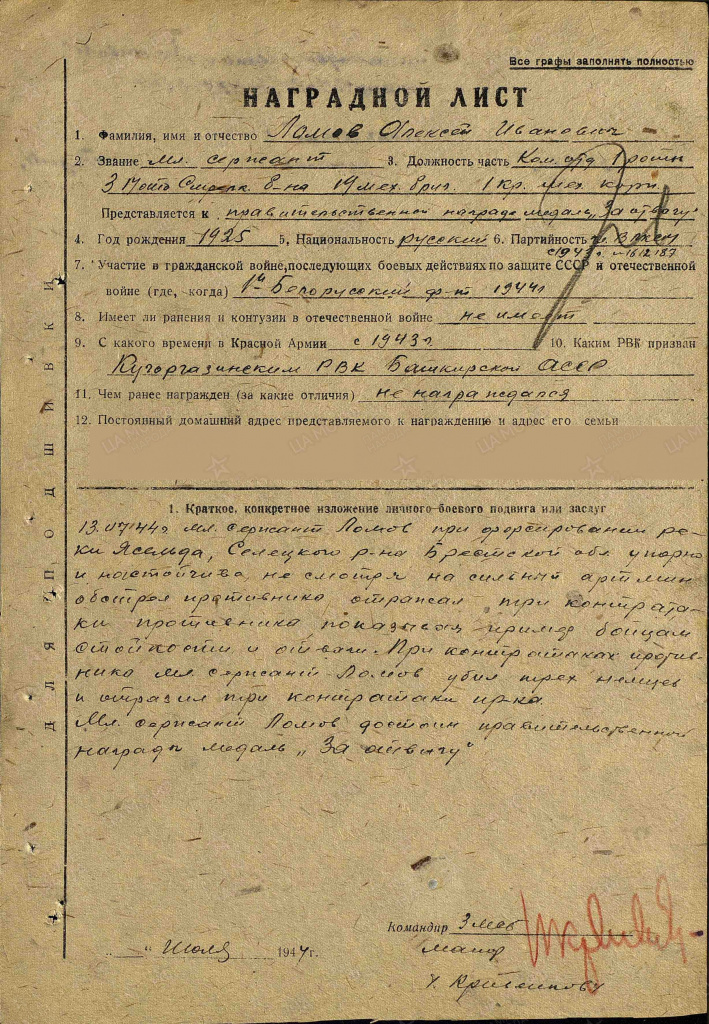 Все графы заполнять полностью
НАГРАДНОЙ ЛИСТ
1. Фамилия, имя и отчество Ломов Алексей Иванович
2. Звание мл. сержант 3. Должность часть Ком. отд. 1 роты
3 19 мех. бриг. 1 кр. мех. корп.
Представляется к правительственной награде медаль „За отвагу"
4. Год рождения 1925 5, Национальность русский 6. Партийность
с 1943 г.
7. Участие в гражданской войне,последующих боевых действиях по защите СССР и отечественной
войне (где, когда) 1й Белорусский ф-т 1944г
8. Имеет ли ранения и контузии в отечественной войне не имеет
9. С какого времени в Красной Армии с 1943г. 10. Каким РВК призван
Кугоргазинским РВК Башкирской АССР
11. Чем ранее награжден (за какие отличия) не награждался
12. Постоянный домашний адрес представляемого к награждению и адрес его семьи
1. Краткое, конкретное изложение личного боевого подвига или заслуг
13.07.44г мл. сержант Ломов при форсировании ре-
ки Ясельда, Селецкого р-на Брестской обл упорно
и настойчиво, не смотря на сильный арт мин
обстрел противника, отражал три контрата-
ки противника показывая пример бойцам
стойкости и отваги. При контратаках против-
ника мл. сержант Ломов убил трех немцев
и отразил три контратаки пр-ка.
Мл. сержант Ломов достоин правительственной
награды медаль „За отвагу"
Для подшивки
„ " Июля 1944г.
Командир 3 мсб
майор